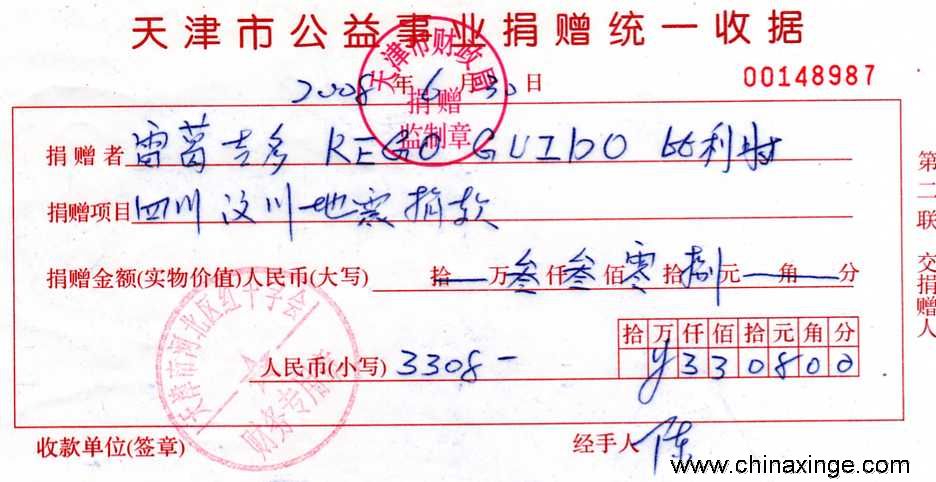 天津市公益事业捐赠统一收据
2008年6月30日
00148987
天津市财政局
捐赠
监制章
捐赠者 雷葛吉多 REGO GUIDO 比利时
捐赠项目 四川汶川地震捐款
捐赠金额(实物价值)人民币(大写) 拾 — 万叁仟叁佰零拾捌元 — 角 — 分
拾万仟佰拾元角分
人民币(小写) 3308- ¥330800
天津市河北区红十字会
财务专用章
收款单位(签章) 经手人 陈
第二联 交捐赠人
www.chinaxinge.com